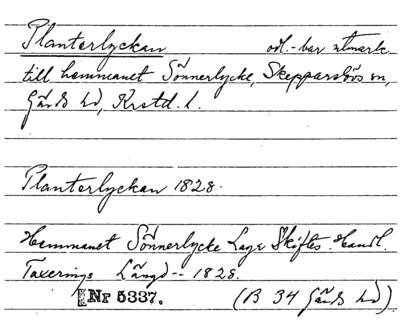 Planterlyckan odl.-bar utmark
till hemmanet Sönnerlycke, Skepparslövs sn,
Gärds hd, Krstd. l.
Planterlyckan 1828.
Hemmanet Sönnerlycke Laga Skiftes Handl.
Taxerings Längd -- 1828.
Nr 5337. (B 34 Gärds hd)